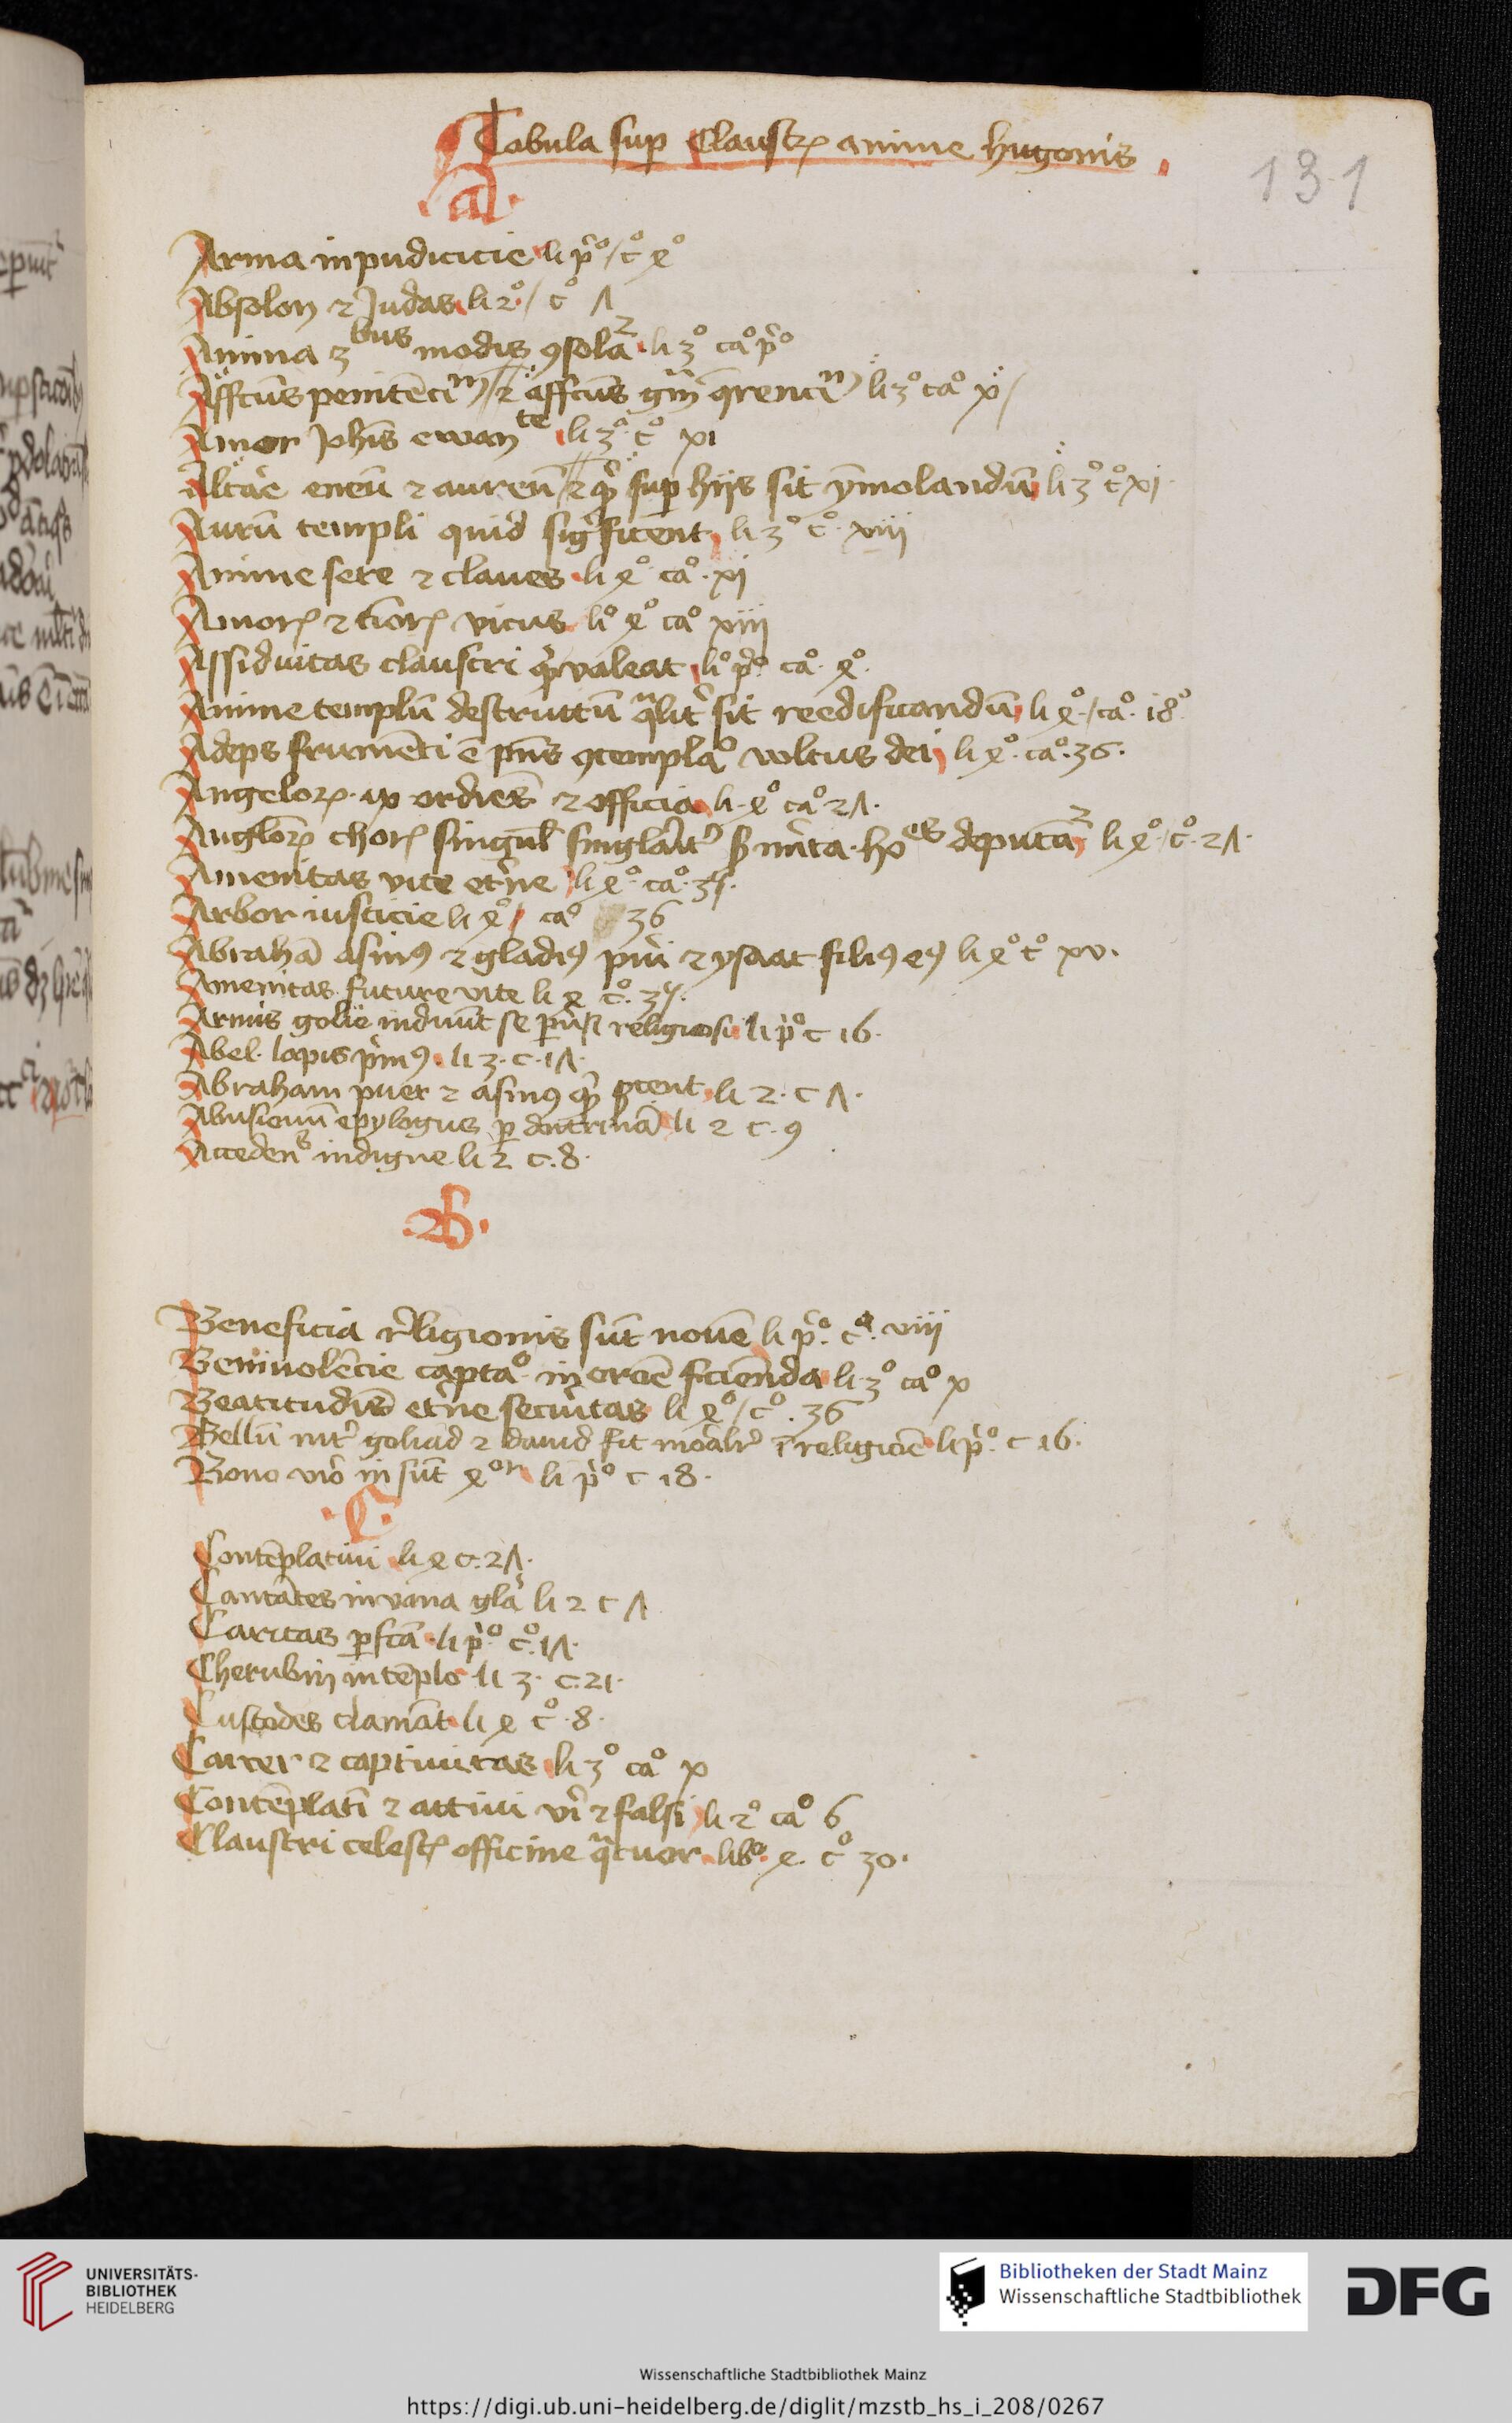 Tabula sup Claustꝝ anime hugonis
131
.a.
Arma inpudicicie li pͦ / cͦ 4ͦ
Absolon ⁊ Judas li 2ͦ / cͦ 7
Anima 3bus modis ꝯsolaͭ li 3ͦ caͦ pͦ
Affcūs penitēciū ⁊ affcūs grām q̄renciū li 3ͦ caͦ x
Amor Johīs ewante li 3ͦ cͦ xi
Altāe eneū ⁊ aureū ⁊ qͥd sup hijs sit ymolandū li 3ͦ cͦ xi
Aurū templi quid sigͥficent li 3ͦ cͦ xiij
Anime sere ⁊ claues li 4ͦ caͦ xi
Amorꝭ ⁊ tīorꝭ vicus liͦ 4ͦ caͦ xiij
Assiduitas claustri qͥd valeat liͦ pͦ caͦ 4ͦ
Anime templū destructū qͣlitͥ sit reedificandū li 4ͦ / caͦ 18ͦ
Adeps frumēti ē pn̄s ꝯtemplaͦ voltus dei li 4ͦ caͦ 36.
Angeloꝝ ix ordiēs ⁊ officia li 4ͦ caͦ 27.
Angloꝝ chorꝭ singul singlarit̉ hoēs deputāͭ li 4ͦ / cͦ 27.
Amenitas vite et̉ne li 4ͦ caͦ 35.
Arbor iusticie li 4ͦ / caͦ 36
Abrahā asinꝰ ⁊ gladiꝰ pu̓i ⁊ ysaac filiꝰ eiꝰ li 4ͦ cͦ xv.
Amenitas future vite li 4 cͦ 35.
Armis golie induūt se religiosi li pͦ c 16.
Abel lapis pͥmꝰ li 3. c. 17.
Abraham puer ⁊ asinꝰ qͥd li 2. c 7.
Abusionū epylogus p doctrinā li 2 c. 9
Accedens indigne li 2 c. 8.
.B.
Beneficia religionis sūt nouē li pͦ. cͣ. viij
Beniuolēcie captaͦ in orōe li 3ͦ caͦ x
Beatitudīs et̉ne secu̓itas li 4ͦ / cͦ. 36
Bellū int̉ goliad ⁊ dauid fit moralit̉ ī religiōe li pͦ. c 16.
Bono viro in sūt 4or li pͦ c 18.
.C.
Contēplatiui li 4 c. 27.
Cantātes in vana glā li 2 c 7
Caritas pfcā li pͦ. cͦ. 17.
Cherubin in tēplo li 3. c. 21.
Custodes clamāt li 4 cͦ. 8.
Carcer ⁊ captiuitas li 3ͦ caͦ x
Contēplati ⁊ actiui vͥi ⁊ falsi li 2ͦ caͦ 6
Claustri celestꝭ officine qͣtuor libͦ. 4. cͦ 30.
UNIVERSITÄTS-
BIBLIOTHEK
HEIDELBERG
Bibliotheken der Stadt Mainz
Wissenschaftliche Stadtbibliothek
DFG
Wissenschaftliche Stadtbibliothek Mainz
https://digi.ub.uni-heidelberg.de/diglit/mzstb_hs_i_208/0267